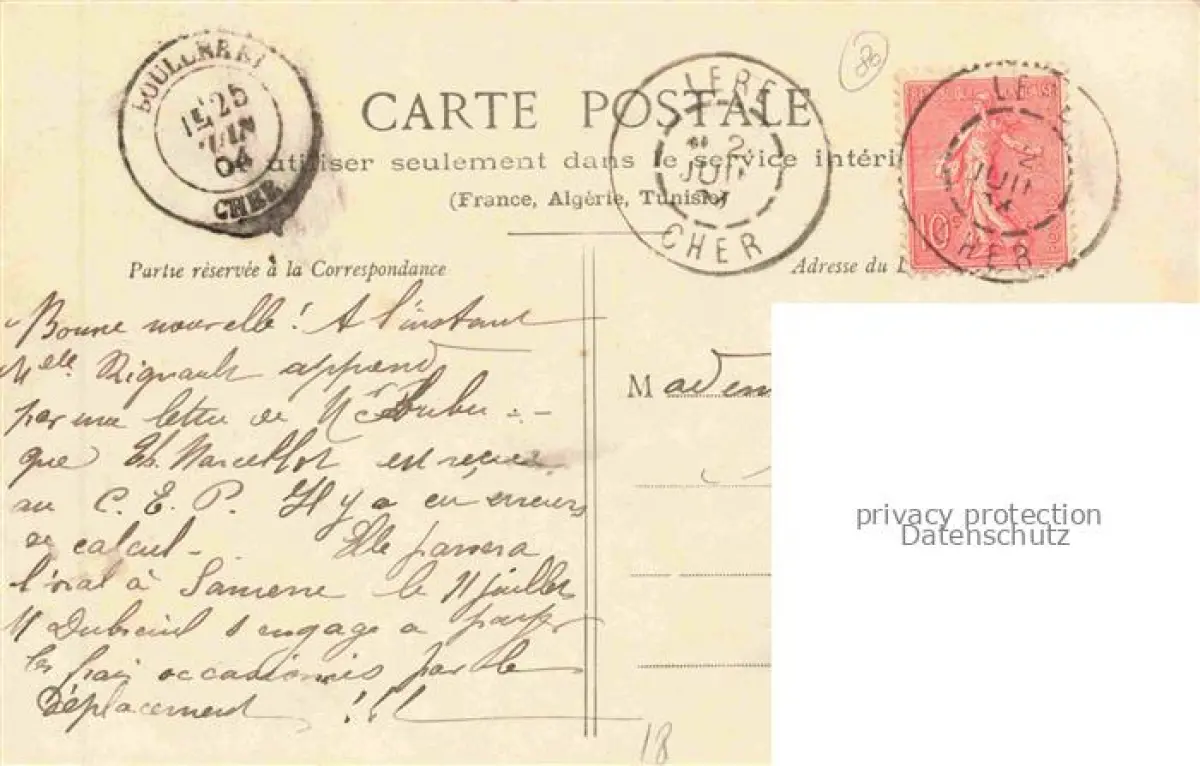 BOULLERET
25
JUIN
04
CHER
80
CARTE POSTALE
utiliser seulement dans le service intéri
(France, Algérie, Tunisie)
LERE
2
JUIN
CHER
LE
JUIN
04
CHER
10c
Partie réservée à la Correspondance
Adresse du
Bonne nouvelle ! A l'instant
Melle Rignault apprend
par une lettre de M
que Eh. Marcellot est reçue
au C. E. P. Il y a eu erreurs
de calcul - Elle passera
l'oral à Sancerre le 11 juillet
M Dubreuil s'engage a payer
les frais occasionnés par le
Déplacement !!!
Madem
18
privacy protection
Datenschutz